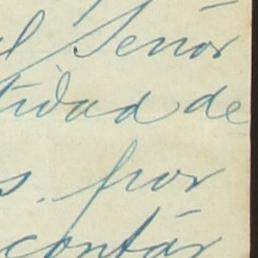 l Señor
tidad de
s. por
contar